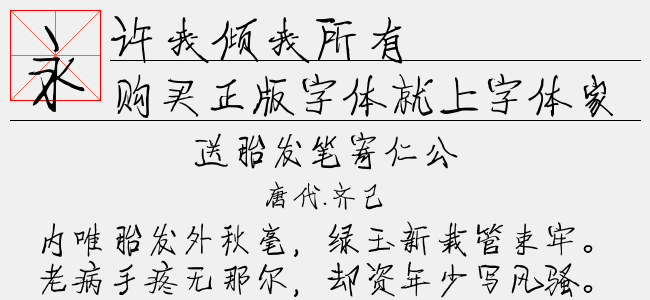 永
许我倾我所有
购买正版字体就上字体家
送胎发笔寄仁公
唐代.齐己
内唯胎发外秋毫，绿玉新栽管束牢。
老病手疼无那尔，却资年少写风骚。